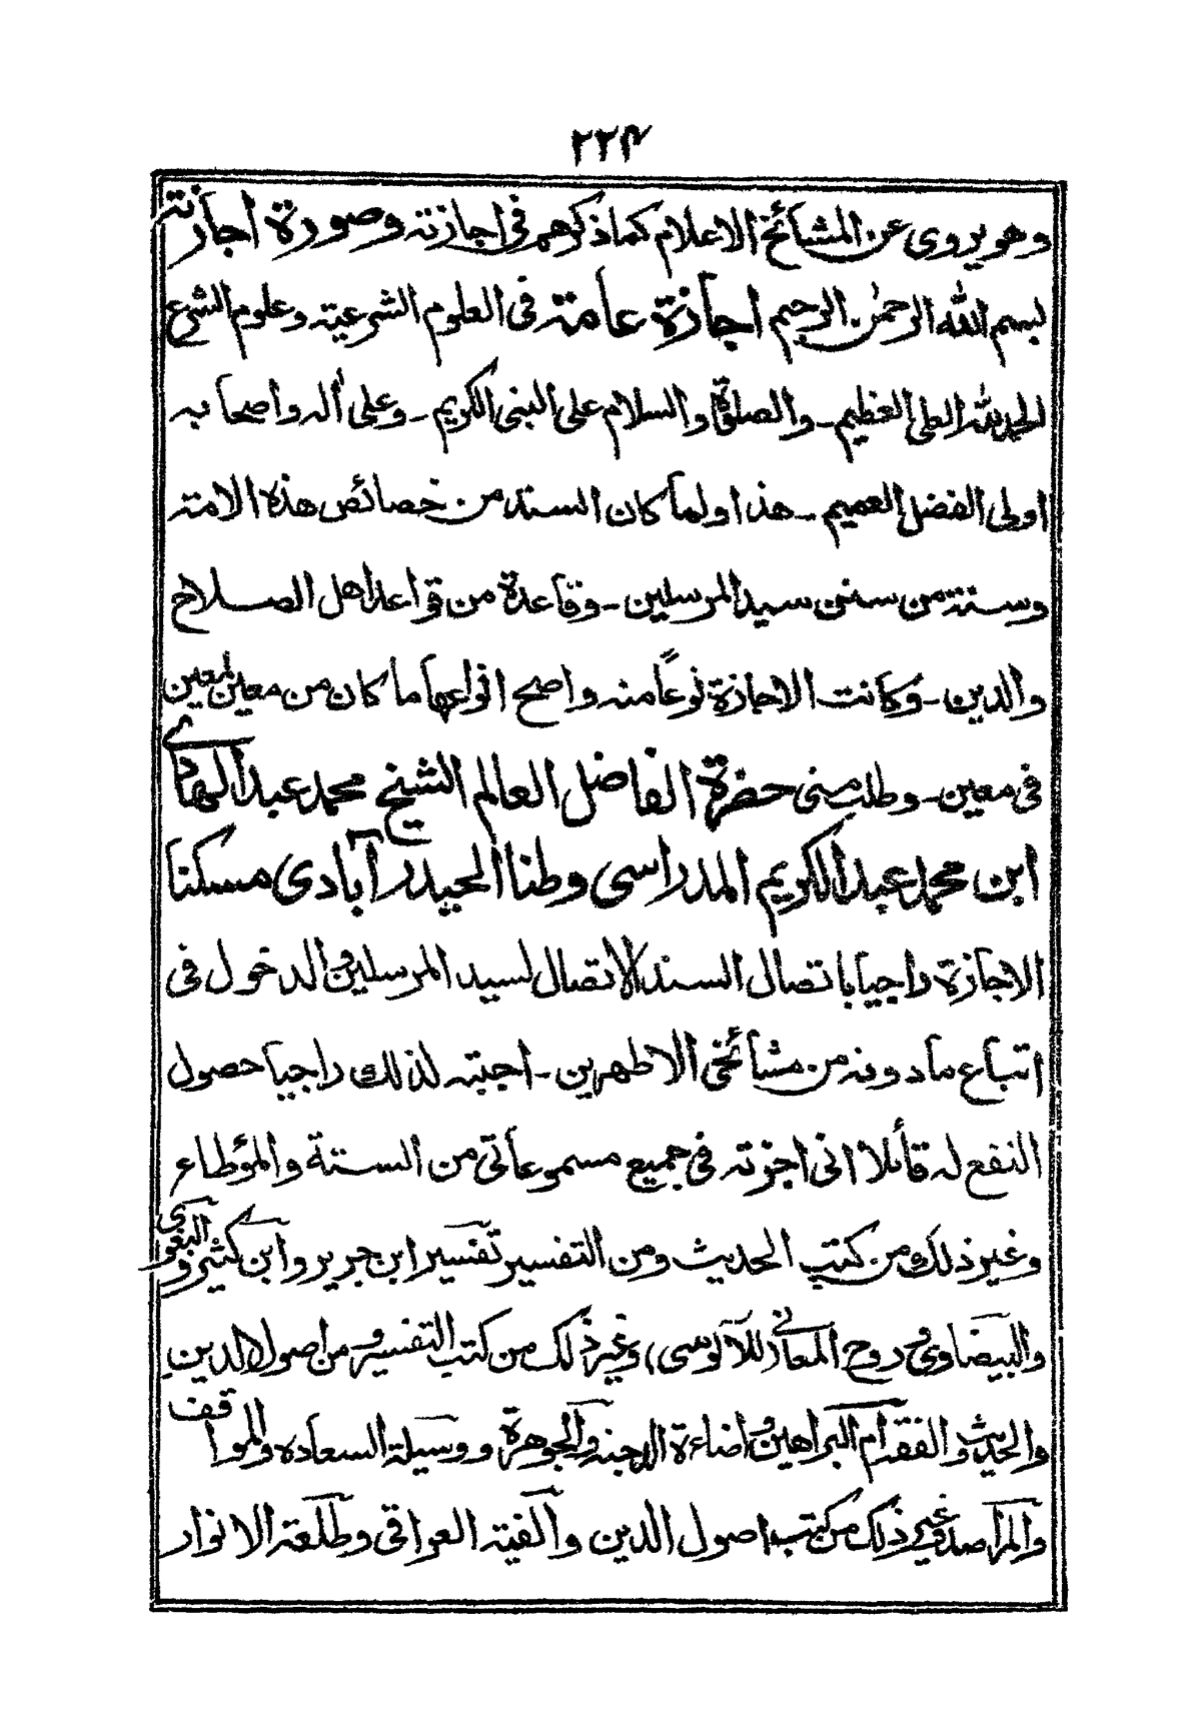 ۲۲۴
وهو يروى عن المشائخ الاعلام كما ذكرهم فى اجازته وصورة اجازته
بسم الله الرحمٰن الرحيم اجازة عامة فى العلوم الشرعية وعلوم الشرع
الحمد لله العلى العظيم ـ والصلوٰة والسلام على النبى الكريم ـ وعلى أله واصحابه
اولى الفضل العميم ـ هذا ولما كان السند من خصائص هذه الامة
وسنة من سنن سيد المرسلين ـ وقاعدة من قواعد اهل الصلاح
والدين ـ وكانت الاجازة نوعًا منه واصح انواعها ما كان من معين لمعين
فى معين ـ وطلب منى حضرة الفاضل العالم الشيخ محمد عبد الهادى
ابن محمد عبد الكريم المدراسى وطنا الحيدر آبادى مسكنا
الاجازة راجيا باتصال السند لاتصال لسيد المرسلين والدخول فى
اتباع مادونه من مشائخى الاطهرين ـ اجبته لذلك راجيا حصول
النفع له قائلا انى اجزته فى جميع مسموعاتى من الستة والمؤطاء
وغير ذلك من كتب الحديث ومن التفسير تفسير ابن جرير وابن كثير والبغوى
والبيضاوى وروح المعانى (للآلوسى) وغير ذلك من كتب التفسير و من اصول الدين
والحديث والفقه أم البراهين و اضاءة الدجنة والجوهرة ووسيلة السعاده والمواقف
والمراصد وغير ذلك من كتب اصول الدين والفية العراقى وطلعة الانوار